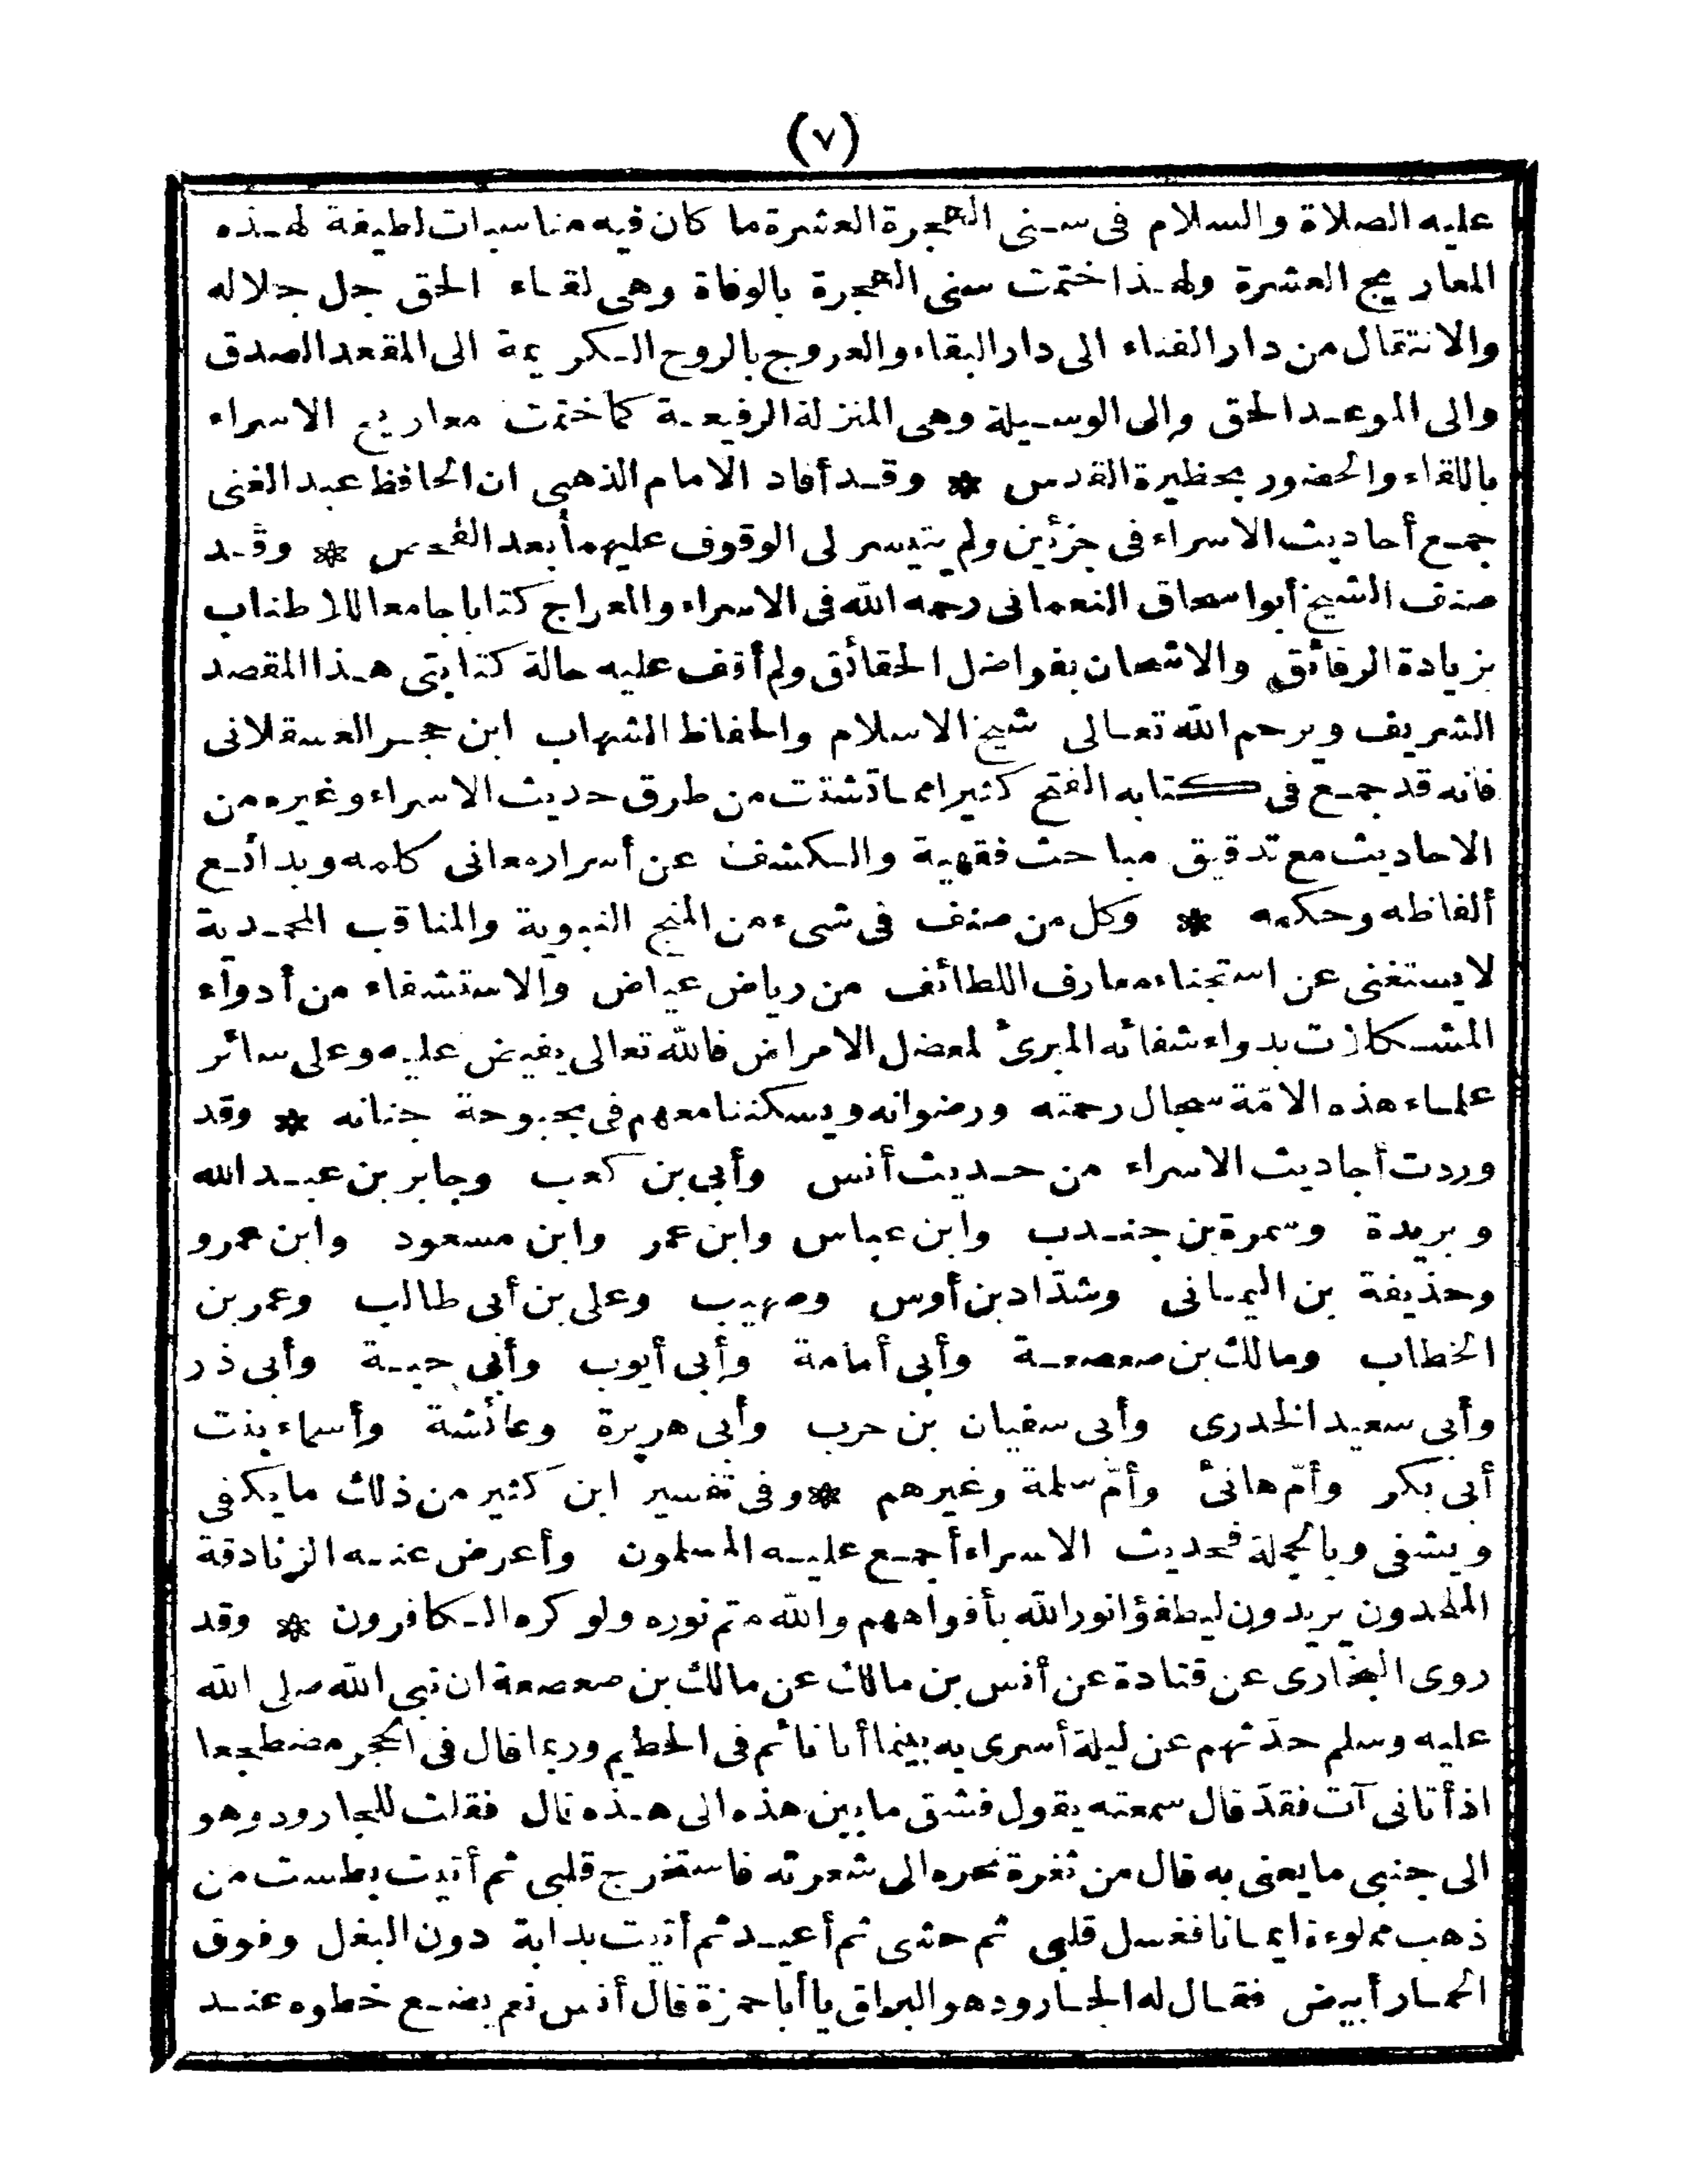 (٧)
عليه الصلاة والسلام فى سنى الهجرة العشرة ما كان فيه مناسبات لطيفة لهذه
المعاريج العشرة ولهذا ختمت سنى الهجرة بالوفاة وهى لقاء الحق جل جلاله
والانتقال من دار الفناء الى دار البقاء والعروج بالروح الكريمة الى المقعد الصدق
والى الموعد الحق والى الوسيلة وهى المنزلة الرفيعة كما ختمت معاريج الاسراء
باللقاء والحضور بحظيرة القدس * وقد أفاد الامام الذهبى ان الحافظ عبد الغنى
جمع أحاديث الاسراء فى جزأين ولم يتيسر لى الوقوف عليهما بعد الفحص * وقد
صنف الشيخ أبو اسحاق النعمانى رحمه الله فى الاسراء والمعراج كتابا جامعا للاطناب
بزيادة الرقائق والاشحان بفواضل الحقائق ولم أقف عليه حالة كتابتى هذا المقصد
الشريف ويرحم الله تعالى شيخ الاسلام والحفاظ الشهاب ابن حجر العسقلانى
فانه قد جمع فى كتابه الفتح كثيرا مما تشتت من طرق حديث الاسراء وغيره من
الاحاديث مع تدقيق مباحث فقهية والكشف عن أسرار معانى كلمه وبدائع
ألفاظه وحكمه * وكل من صنف فى شىء من المنح النبوية والمناقب المحمدية
لا يستغنى عن استجناء معارف اللطائف من رياض عياض والاستشفاء من أدواء
المشكلات بدواء شفائه المبرئ لمعضل الامراض فالله تعالى يفيض عليه وعلى سائر
علماء هذه الامّة سجال رحمته ورضوانه ويسكننا معهم فى بحبوحة جنانه * وقد
وردت أحاديث الاسراء من حديث أنس وأبى بن كعب وجابر بن عبد الله
وبريدة وسمرة بن جندب وابن عباس وابن عمر وابن مسعود وابن عمرو
وحذيفة بن اليمانى وشدّاد بن أوس وصهيب وعلى بن أبى طالب وعمر بن
الخطاب ومالك بن صعصعة وأبى أمامة وأبى أيوب وأبى حبة وأبى ذر
وأبى سعيد الخدرى وأبى سفيان بن حرب وأبى هريرة وعائشة وأسماء بنت
أبى بكر وأمّ هانئ وأمّ سلمة وغيرهم * وفى تفسير ابن كثير من ذلك ما يكفى
ويشفى وبالجملة فحديث الاسراء أجمع عليه المسلمون وأعرض عنه الزنادقة
الملحدون يريدون ليطفؤا نور الله بأفواههم والله متم نوره ولو كره الكافرون * وقد
روى البخارى عن قتادة عن أنس بن مالك عن مالك بن صعصعة ان نبى الله صلى الله
عليه وسلم حدّثهم عن ليلة أسرى به بينما أنا نائم فى الحطيم وربما قال فى الحجر مضطجعا
اذ أتانى آت فقدّ قال سمعته يقول فشق ما بين هذه الى هذه قال فقلت للجارود وهو
الى جنبى ما يعنى به قال من ثغرة نحره الى شعرته فاستخرج قلبى ثم أتيت بطست من
ذهب مملوءة ايمانا فغسل قلبى ثم حشى ثم أعيد ثم أتيت بدابة دون البغل وفوق
الحمار أبيض فقال له الجارود هو البراق يا أبا حمزة قال أنس نعم يضع خطوه عند